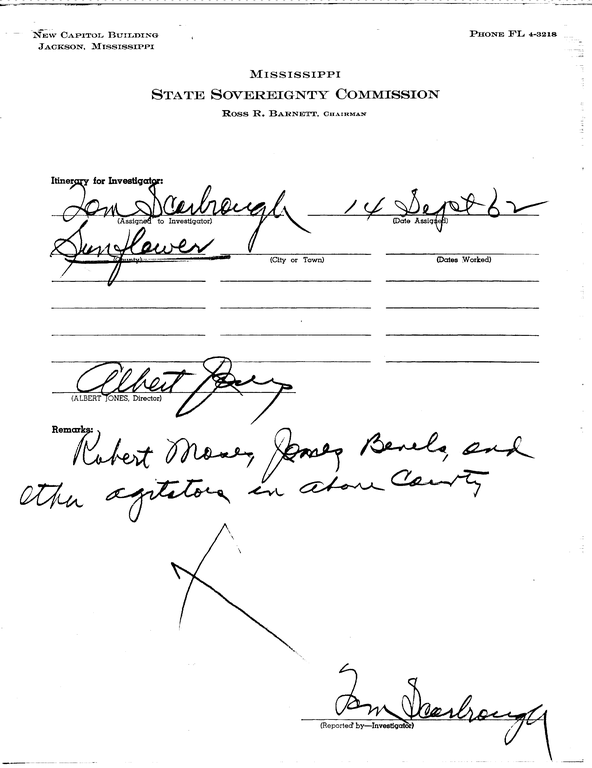 NEW CAPITOL BUILDING
JACKSON, MISSISSIPPI
PHONE FL 4-3218
MISSISSIPPI
STATE SOVEREIGNTY COMMISSION
ROSS R. BARNETT, CHAIRMAN
Itinerary for Investigator:
Tom Scarbrough 14 Sept 62
(Assigned to Investigator) (Date Assigned)
Sunflower
(County) (City or Town) (Dates Worked)
Albert Jones
(ALBERT JONES, Director)
Remarks:
Robert Moses, James Bevels, and
other agitators in above County
Tom Scarbrough
(Reported by—Investigator)